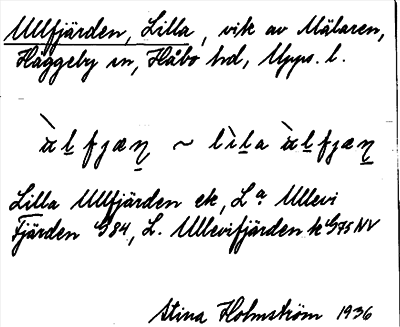 Ullfjärden, Lilla, vik av Mälaren,
Häggeby sn, Håbo hd, Upps. l.
ùl̠fjæṉ ~ lìl̠a ùl̠fjæṉ
Lilla Ullfjärden ek, L:a Ullevi
Fjärden G84, L. Ullevifjärden k G75 NV
Stina Holmström 1936